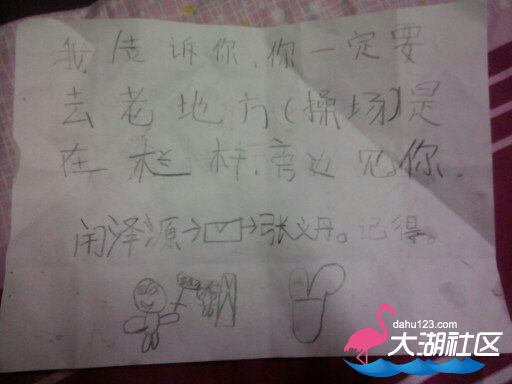 我告诉你,你一定要
去老地方(操场)是
在栏杆,旁边见你.
闭泽源→→张义丹。记得。
dahu123.com
大湖社区